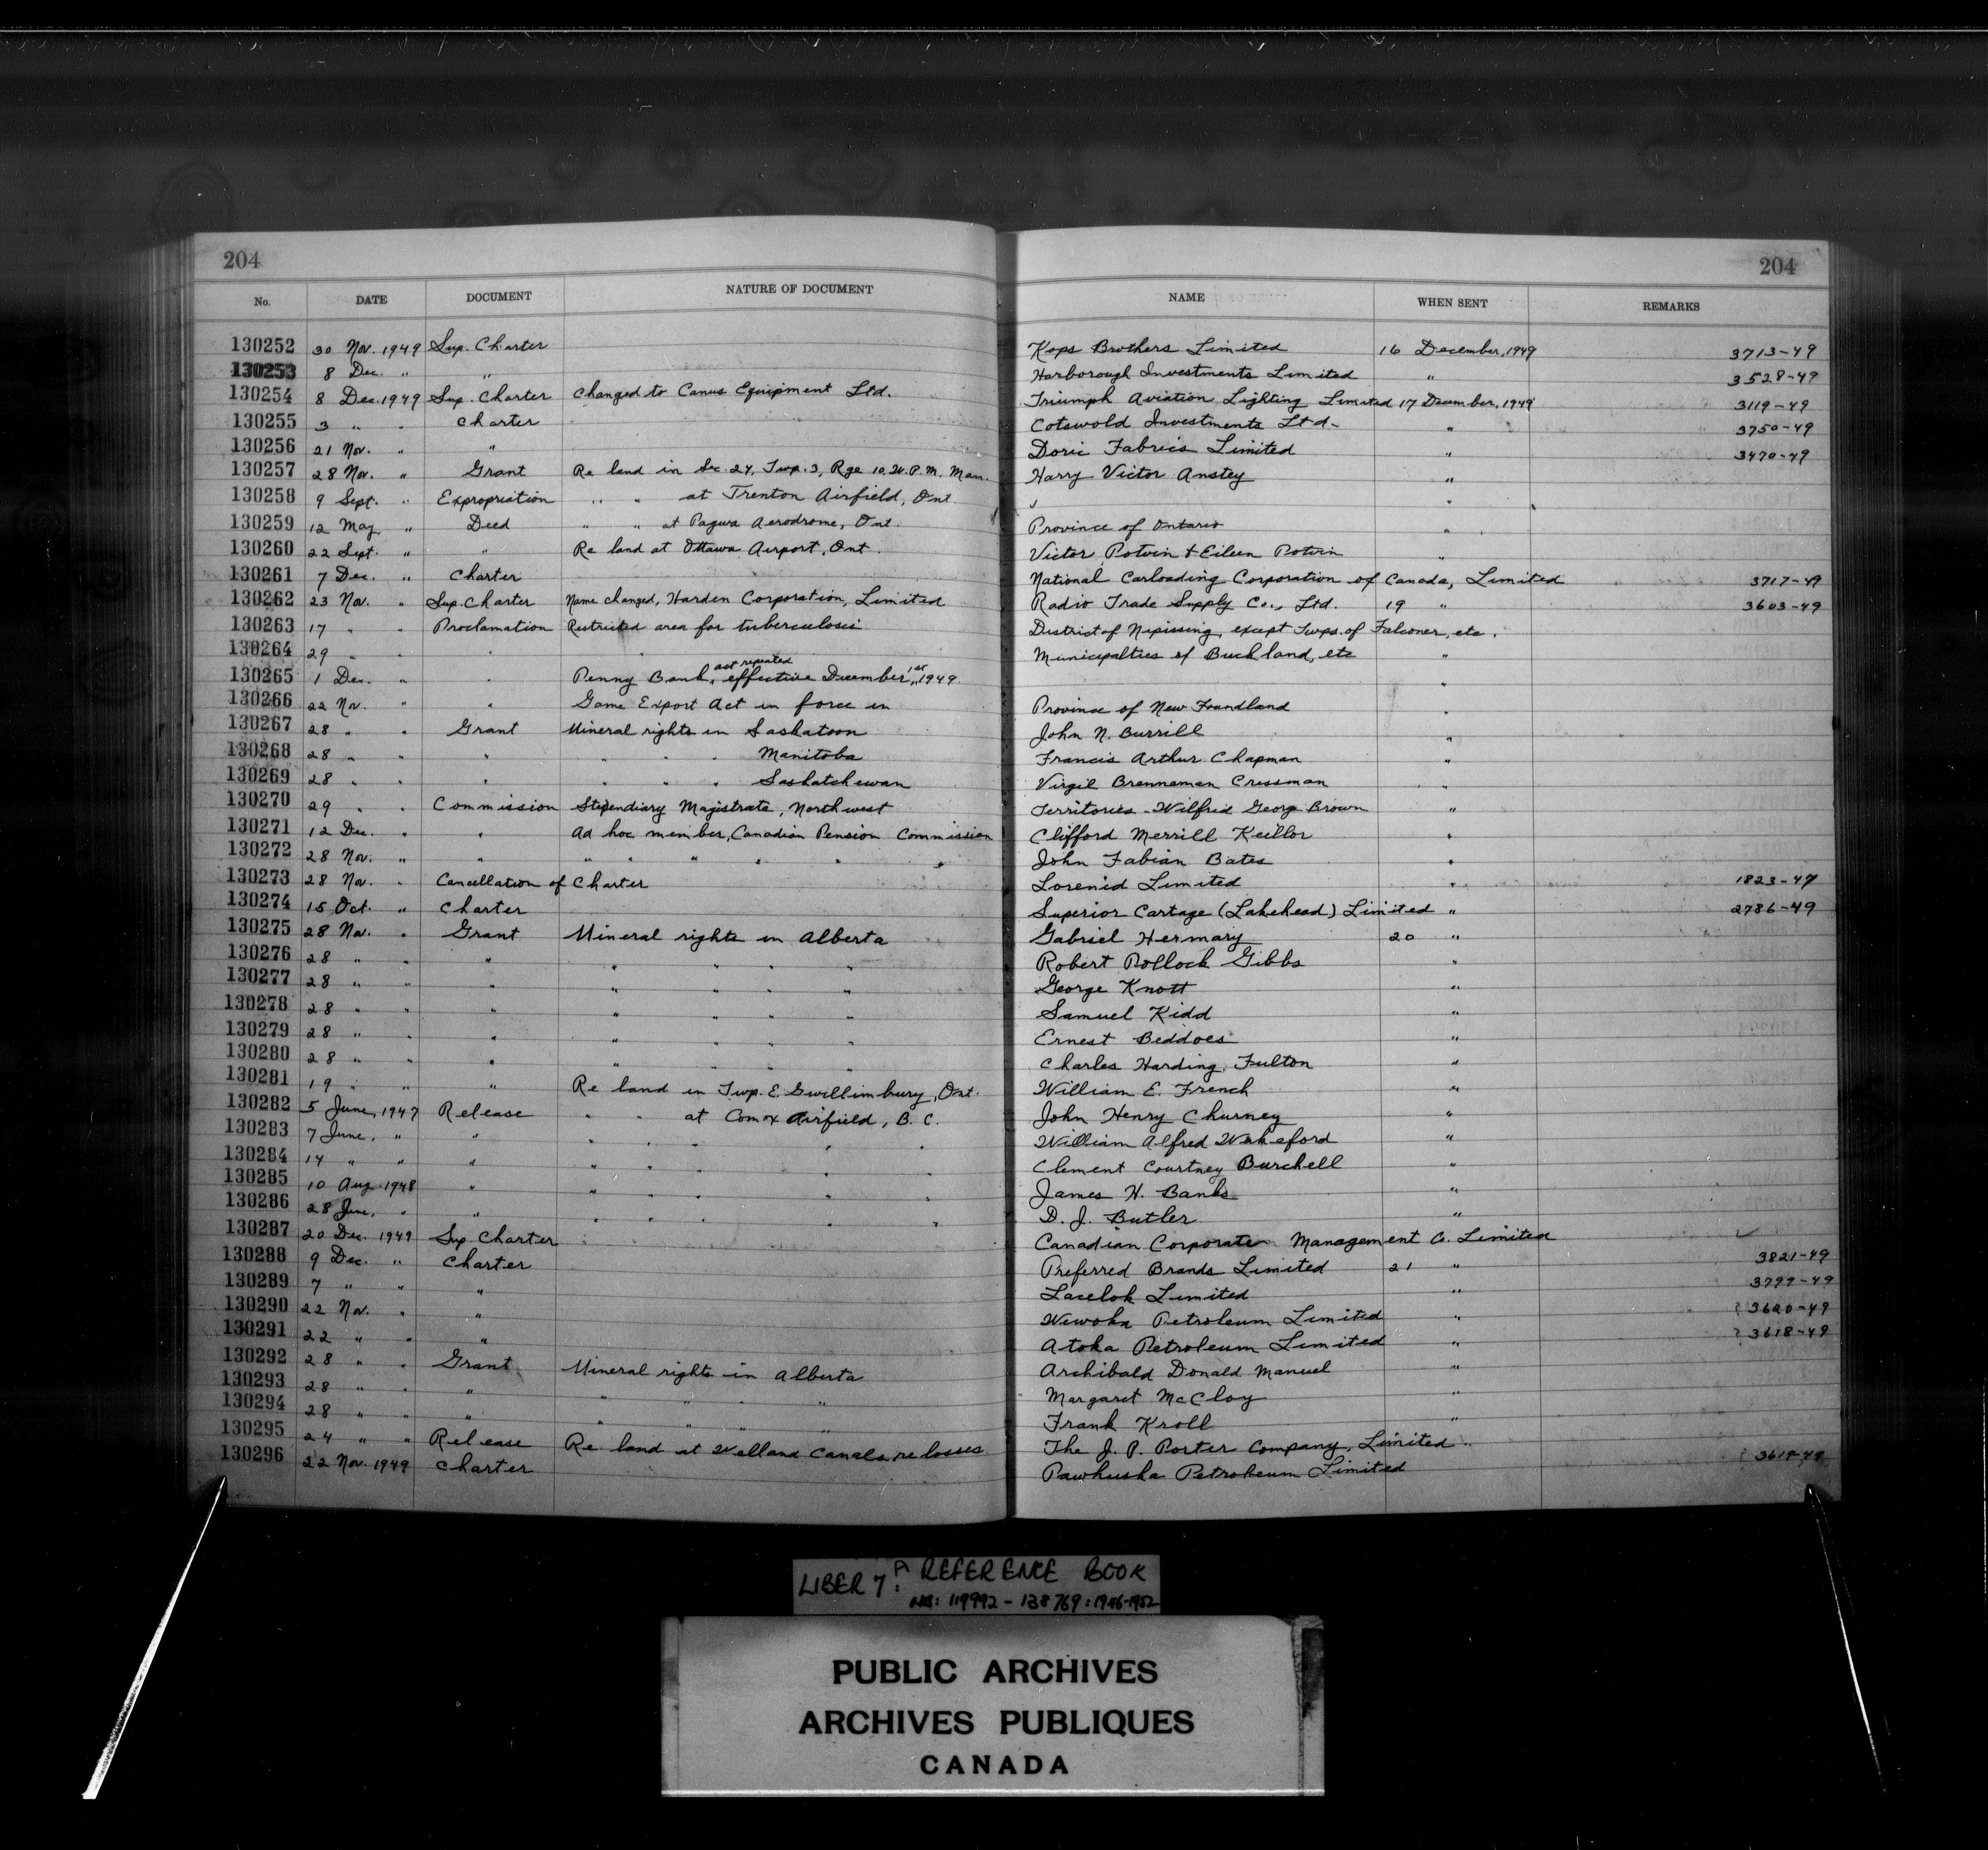 204
204
No. DATE DOCUMENT NATURE OF DOCUMENT NAME WHEN SENT REMARKS
130252 30 Nov. 1949 Sup. Charter Kops Brothers Limited 16 December, 1949 3713-49
130253 8 Dec. " " Harborough Investments Limited " 3528-49
130254 8 Dec. 1949 Sup. Charter changed to Canus Equipment Ltd. Triumph Aviation Lighting Limited 17 December, 1949 3119-49
130255 3 " " Charter Cotswold Investments Ltd- " 3750-49
130256 21 Nov. " " Doric Fabrics Limited " 3470-49
130257 28 Nov. " Grant Re land in Sec. 24, Twp. 3, Rge 10, W.P.M. Man. Harry Victor Anstey "
130258 9 Sept. " Expropriation " " at Trenton Airfield, Ont. "
130259 12 May, " Deed " " at Pagwa Aerodrome, Ont. Province of Ontario "
130260 22 Sept. " " Re land at Ottawa Airport, Ont. Victor Potvin & Eileen Potvin "
130261 7 Dec. " Charter National Carloading Corporation of Canada, Limited 3717-49
130262 23 Nov. " Sup. Charter Name changed, Harden Corporation, Limited Radio Trade Supply Co., Ltd. 19 " 3603-49
130263 17 " " Proclamation Restricted area for tuberculosis District of Nipissing, except Twps. of Falconer, etc.
130264 29 " " " " Municipalties of Buckland, etc "
130265 1 Dec. " " Penny Bank, act repealed effective December, 1st, 1949 "
130266 22 Nov. " " Game Export Act in force in Province of New Foundland "
130267 28 " " Grant Mineral rights in Saskatoon John N. Burrill "
130268 28 " " " " " " Manitoba Francis Arthur Chapman "
130269 28 " " " " " " Saskatchewan Virgil Brenneman Cressman "
130270 29 " " Commission Stipendiary Magistrate, Northwest Territories - Wilfrid George Brown "
130271 12 Dec. " " Ad hoc member, Canadian Pension Commission Clifford Merrill Keillor "
130272 28 Nov. " " " " " " " " John Fabian Bates "
130273 28 Nov. " Cancellation of Charter Lorenid Limited " 1823-47
130274 15 Oct. " Charter Superior Cartage (Lakehead) Limited " 2786-49
130275 28 Nov. " Grant Mineral rights in Alberta Gabriel Hermary 20 "
130276 28 " " " " " " " Robert Pollock Gibbs "
130277 28 " " " " " " " George Knott "
130278 28 " " " " " " " Samuel Kidd "
130279 28 " " " " " " " Ernest Beddoes "
130280 28 " " " " " " " Charles Harding Fulton "
130281 19 " " " Re land in Twp. E. Gwillimbury, Ont. William E. French "
130282 5 June, 1947 Release " " at Comox Airfield, B.C. John Henry Churney "
130283 7 June, " " " " " " " William Alfred Wakeford "
130284 14 " " " " " " " " Clement Courtney Burchell "
130285 10 Aug. 1948 " " " " " " James H. Banks "
130286 28 June, " " " " " " " D. J. Butler "
130287 20 Dec. 1949 Sup. Charter Canadian Corporate Management Co. Limited
130288 9 Dec. " Charter Preferred Brands Limited 21 " 3821-49
130289 7 " " " Lacelok Limited " 3799-49
130290 22 Nov. " " Wewoka Petroleum Limited " 3620-49
130291 22 " " " Atoka Petroleum Limited " 3618-49
130292 28 " " Grant Mineral rights in Alberta Archibald Donald Manuel "
130293 28 " " " " " " " Margaret McCloy "
130294 28 " " " " " " " Frank Kroll "
130295 24 " " Release Re land at Welland Canals re losses The J. P. Porter Company, Limited
130296 22 Nov. 1949 Charter Pawhuska Petroleum Limited 3619-49
LIBER 7A: REFERENCE BOOK
NOS: 119992 - 138769: 1946-1952
PUBLIC ARCHIVES
ARCHIVES PUBLIQUES
CANADA